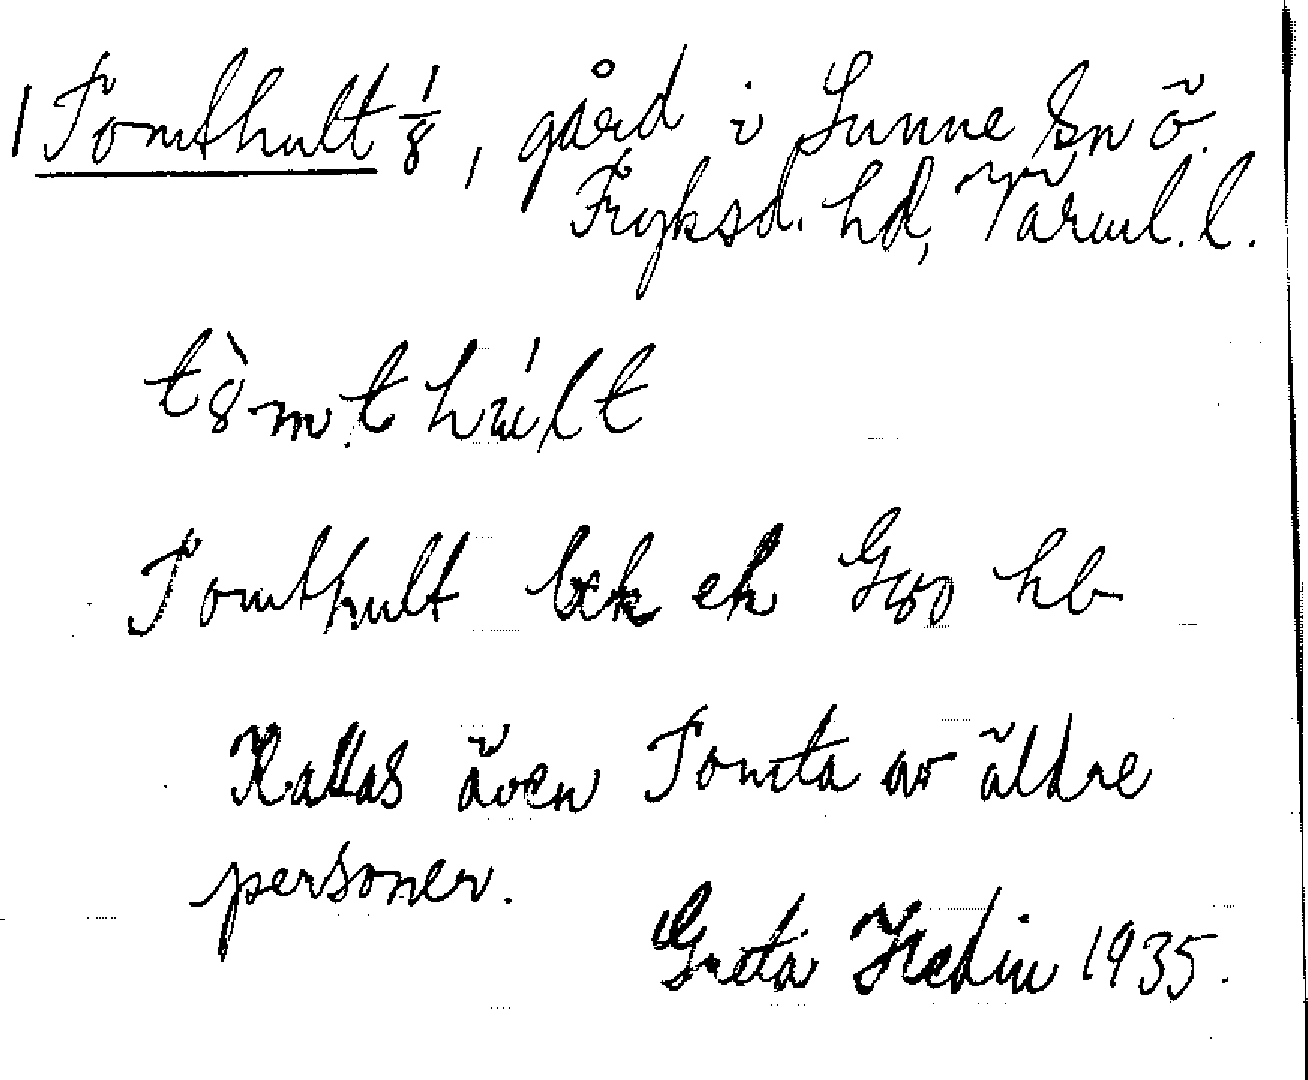 1 Tomthult 1/8, gård i Sunne sn ö.
Fryksd. hd, Värml. l.
Tomthult bek ek
Kallas även Tomta av äldre
personer.
Greta Hedin 1935.